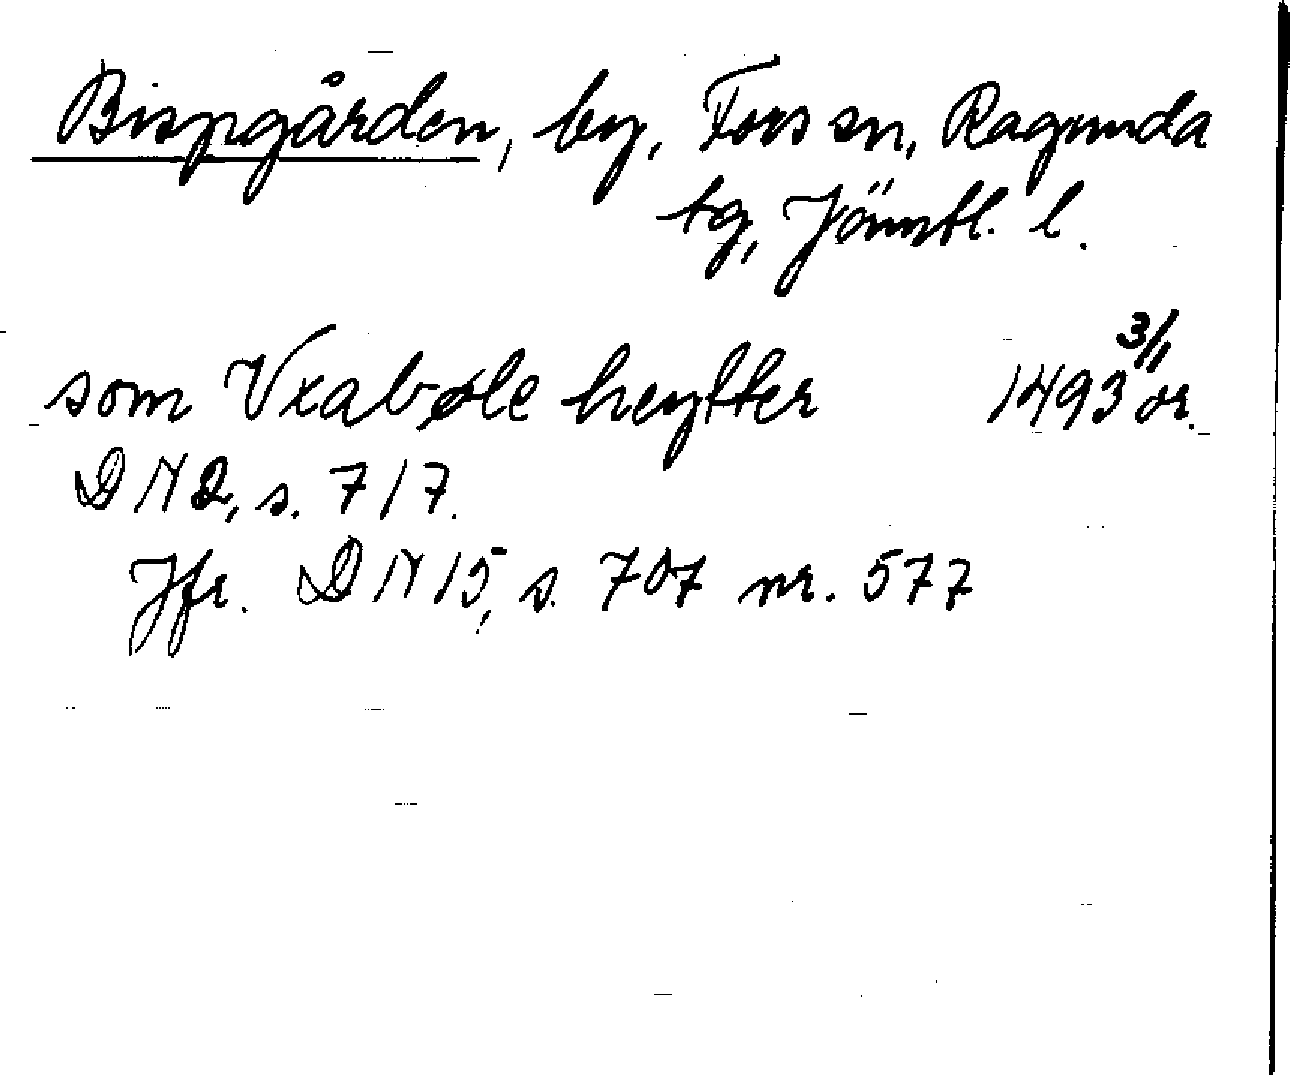 Bispgården, by, Fors sn, Ragunda
tg, Jämtl. l.
som Vxabøle heytter 1493 3/1 or.
DN 2, s. 717.
Jfr. DN 15, s. 707 nr. 577